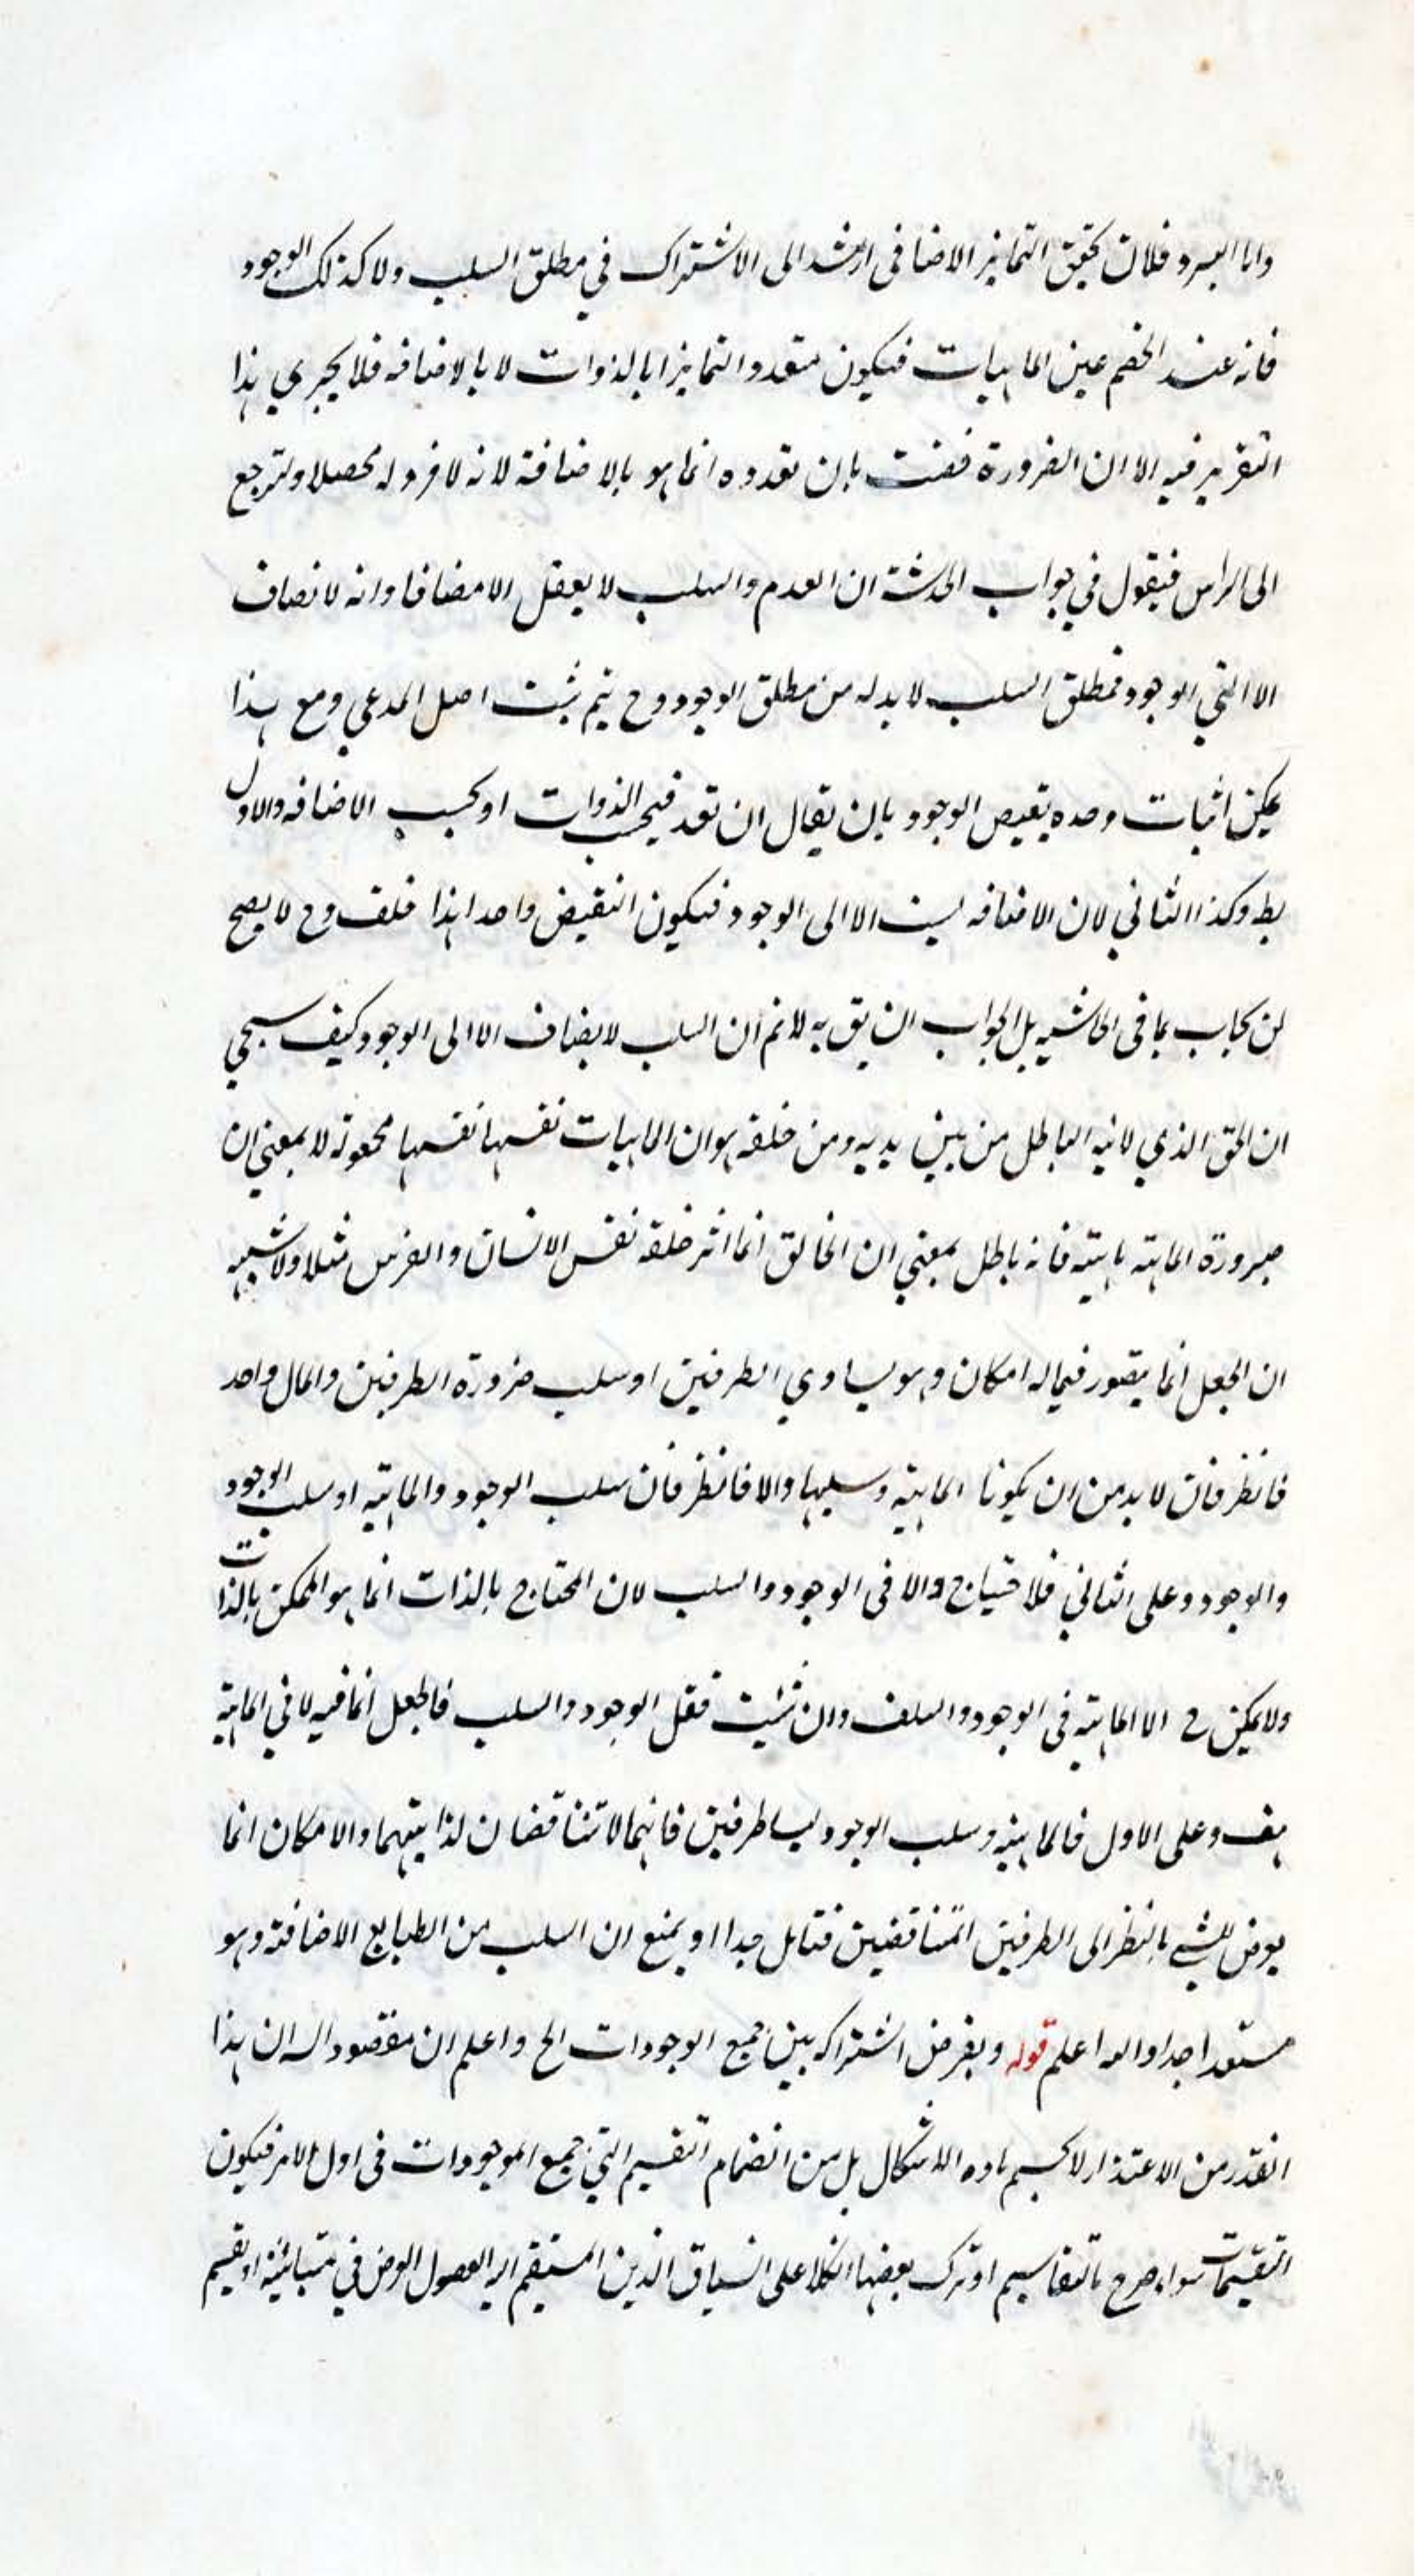 واما السرد فلان تحقق التمايز الاضافى ارشد الى الاشتراك في مطلق السلب ولا كذلك الوجود
فانه عند الخصم عين الماهيات فيكون متعددا متمايزا بالذوات لا بالاضافه فلا يجري هذا
التقرير فيه الا ان الضرورة قضت بان تعدده انما هو بالاضافة لانه لا فرد له محصلا ولترجع
الى الراس فيقول في جواب الخدشة ان العدم والسلب لا يعقل الا مضافا وانه لا نضاف
الا الى الوجود فمطلق السلب لا بد له من مطلق الوجود وح يتم ثبت اصل المدعي ومع هذا
يمكن اثبات وحده نقيض الوجود بان يقال ان تعدد فبحسب الذوات او بحسب الاضافه والاول
بط وكذا الثاني لان الاضافه ليست الا الى الوجود فيكون النقيض واحدا هذا خلف وح لا يصح
ان يجاب بما فى الحاشيه بل الجواب ان يق به لانم ان السلب لا يضاف الا الى الوجود كيف سيجي
ان الحق الذي لا تيه الباطل من بين يديه ومن خلفه هو ان الماهيات نفسها نفسها مجعولة لا بمعني ان
صيرورة الماهية ماهيته فانه باطل بمعني ان الخالق انما اثر خلقه نفس الانسان والفرس مثلا ولا شبهه
ان الجعل انما يتصور فيما له امكان وهو تساوي الطرفين او سلب ضرورة الطرفين والمال واحد
فالطرفان لا بد من ان يكونا الماهية وسلبها والا فالطرفان سلب الوجود والماهية او سلب الوجود
والوجود وعلى الثاني فلا احتياج والا فى الوجود والسلب لان المحتاج بالذات انما هو الممكن بالذات
ولا يمكن ح الا الماهية فى الوجود والسلف وان شئت فقل الوجود والسلب فالجعل انما فيه لا في الماهية
هف وعلى الاول فالماهية وسلب الوجود ليسا طرفين فانهما لا تتناقضان لذاتيهما والامكان انما
يعرض للشي بالنظر الى الطرفين المتناقضين فتامل جدا او يمنع ان السلب من الطبايع الاضافة وهو
مستبعد جدا والله اعلم قوله وبفرض اشتراكه بين جميع الوجودات الخ واعلم ان مقصوده ان هذا
القدر من الاعتذار لا يحسم ماده الاشكال بل من انضمام التقسيم الى جميع الموجودات فى اول الامر فيكون
التقسيمات سواء صرح بالتقاسيم او ترك بعضها اتكالا على انسياق الذهن المستقيم اليه العصول العرض في متبائنة او تقسيم